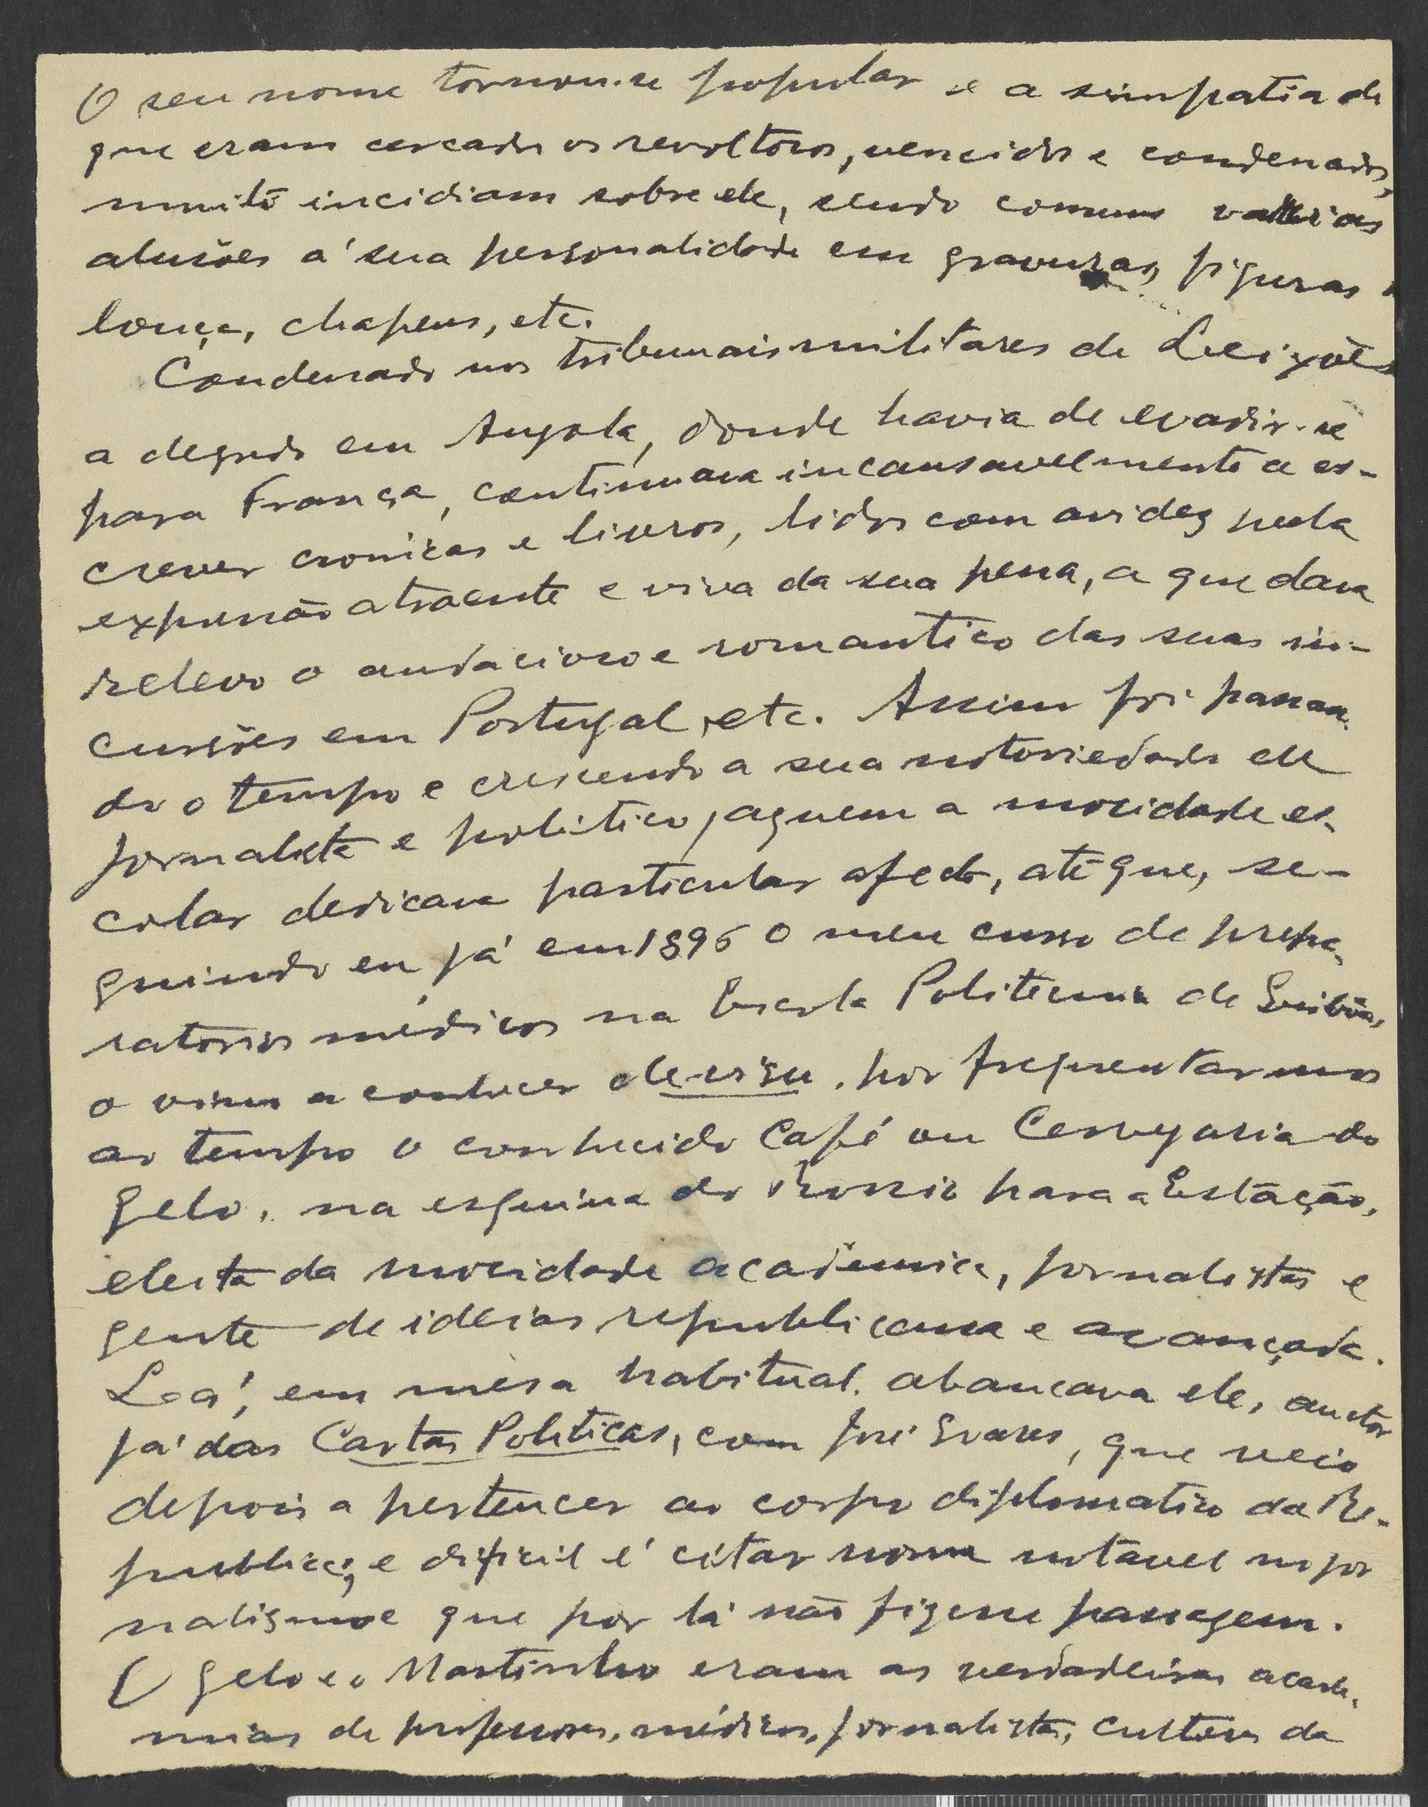 O seu nome tornou-se popular e a simpatia de
que eram cercados os revoltosos, vencidos e condenados,
muito incidiam sobre ele, sendo comuns varias
alusões á sua personalidade em gravuras, figuras
louça, chapeus, etc.
Condenado nos tribunais militares de Leixões
a degredo em Angola, donde havia de evadir-se
para França, continuava incansavelmente a es-
crever cronicas e livros, lidos com avidez pela
expressão atraente e viva da sua pena, a que dava
relevo o audacioso e romantico das suas in-
cursões em Portugal, etc. Assim foi passan-
do o tempo e crescendo a sua notoriedade de
jornalista e politico, a quem a mocidade es-
colar dedicava particular afecto, até que, se-
guindo eu já em 1896 o meu curso de prepa-
ratorios médicos na Escola Politecnica de Lisboa,
o vim a conhecer de-visu, por frequentarmos
ao tempo o conhecido Café ou Cervejaria do
Gelo, na esquina do Rossio para a Estação,
eleita da mocidade académica, jornalistas e
gente de ideias republicana e avançada.
Lá, em mesa habitual, abancava ele, auctor
já das Cartas Politicas, com José Soares, que veio
depois a pertencer ao corpo diplomatico da Re-
publica, e dificil é citar nome notavel no jor
nalismo e que por lá não fizesse passagem.
O Gelo e o Martinho eram as verdadeiras acade-
mias de professores, médicos, jornalistas, cultores da